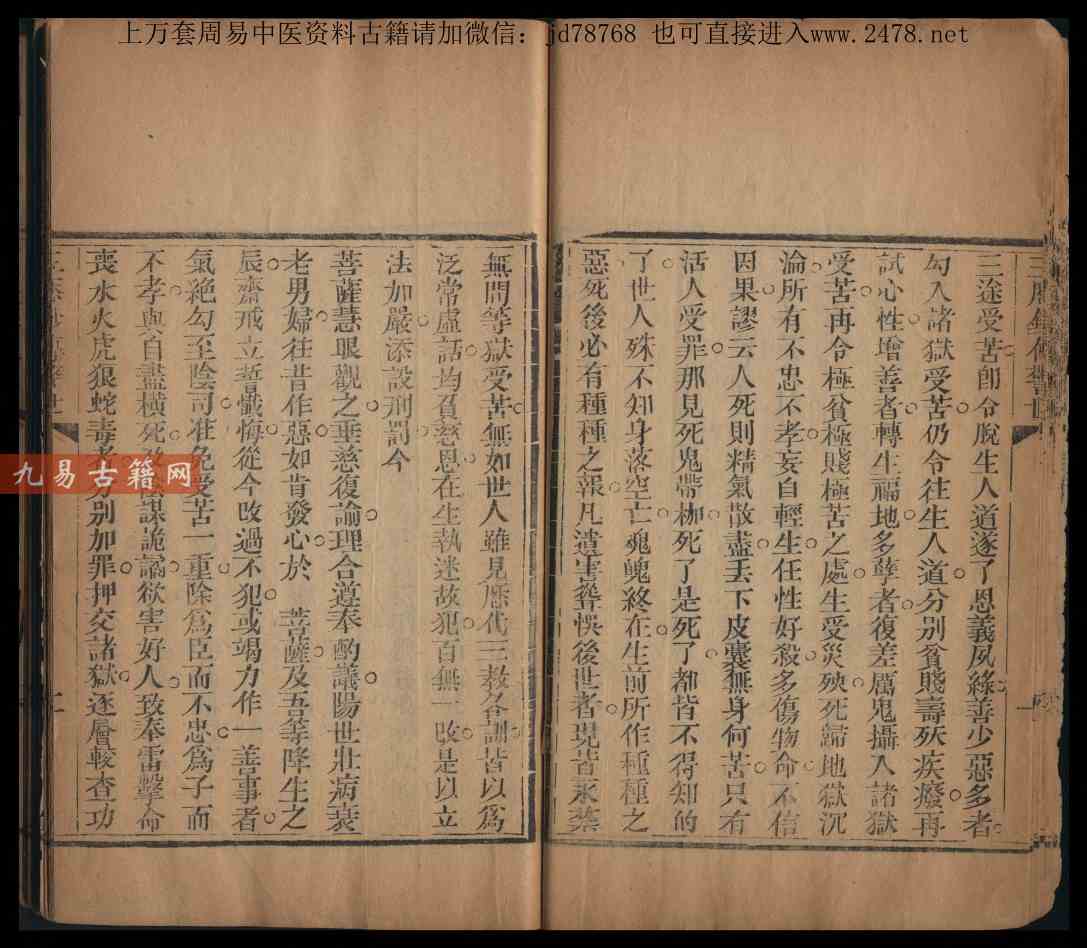 上万套周易中医资料古籍请加微信：jd78768 也可直接进入www.2478.net
三途受苦卽令脫生人道遂了恩義夙緣善少惡多者
勾入諸獄受苦仍令往生人道分別貧賤壽殀疾癈再
試心性增善者轉生福地多孽者復差厲鬼攝入諸獄
受苦再令極貧極賤極苦之處生受災殃死歸地獄沉
淪所有不忠不孝妄自輕生任性好殺多傷物命不信
因果謬云人死則精氣散盡丟下皮囊無身何苦只有
活人受罪那見死鬼帶枷死了是死了都皆不得知的
了世人殊不知身落空亡魂魄終在生前所作種種之
惡死後必有種種之報凡遺害聳悞後世者現皆永禁
無間等獄受苦無如世人雖見歷代三教各訓皆以爲
泛常虛話均負慈恩在生執迷故犯百無一改是以立
法加嚴添設刑罰今
菩薩慧眼觀之垂慈復諭理合遵奉酌議陽世壯病衰
老男婦往昔作惡如肯發心於 菩薩及吾等降生之
辰齋戒立誓懺悔從今改過不犯或竭力作一善事者
氣絶勾至陰司准免受苦一重除爲臣而不忠爲子而
不孝與自盡橫死謀詭譎欲害好人致奉雷擊命
喪水火虎狼蛇毒者分別加罪押交諸獄逐層較查功
九易古籍网